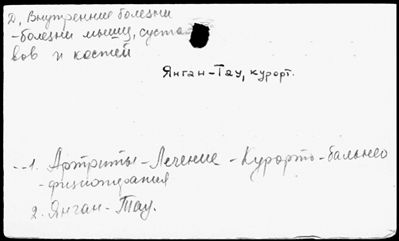 Д, Внутренние болезни
-болезни мышц, суста-
вов и костей
Янган-Тау, курорт.
--1. Артриты-Лечение-Курорто-бальнео
-физиотерапия
2. Янган-Тау.